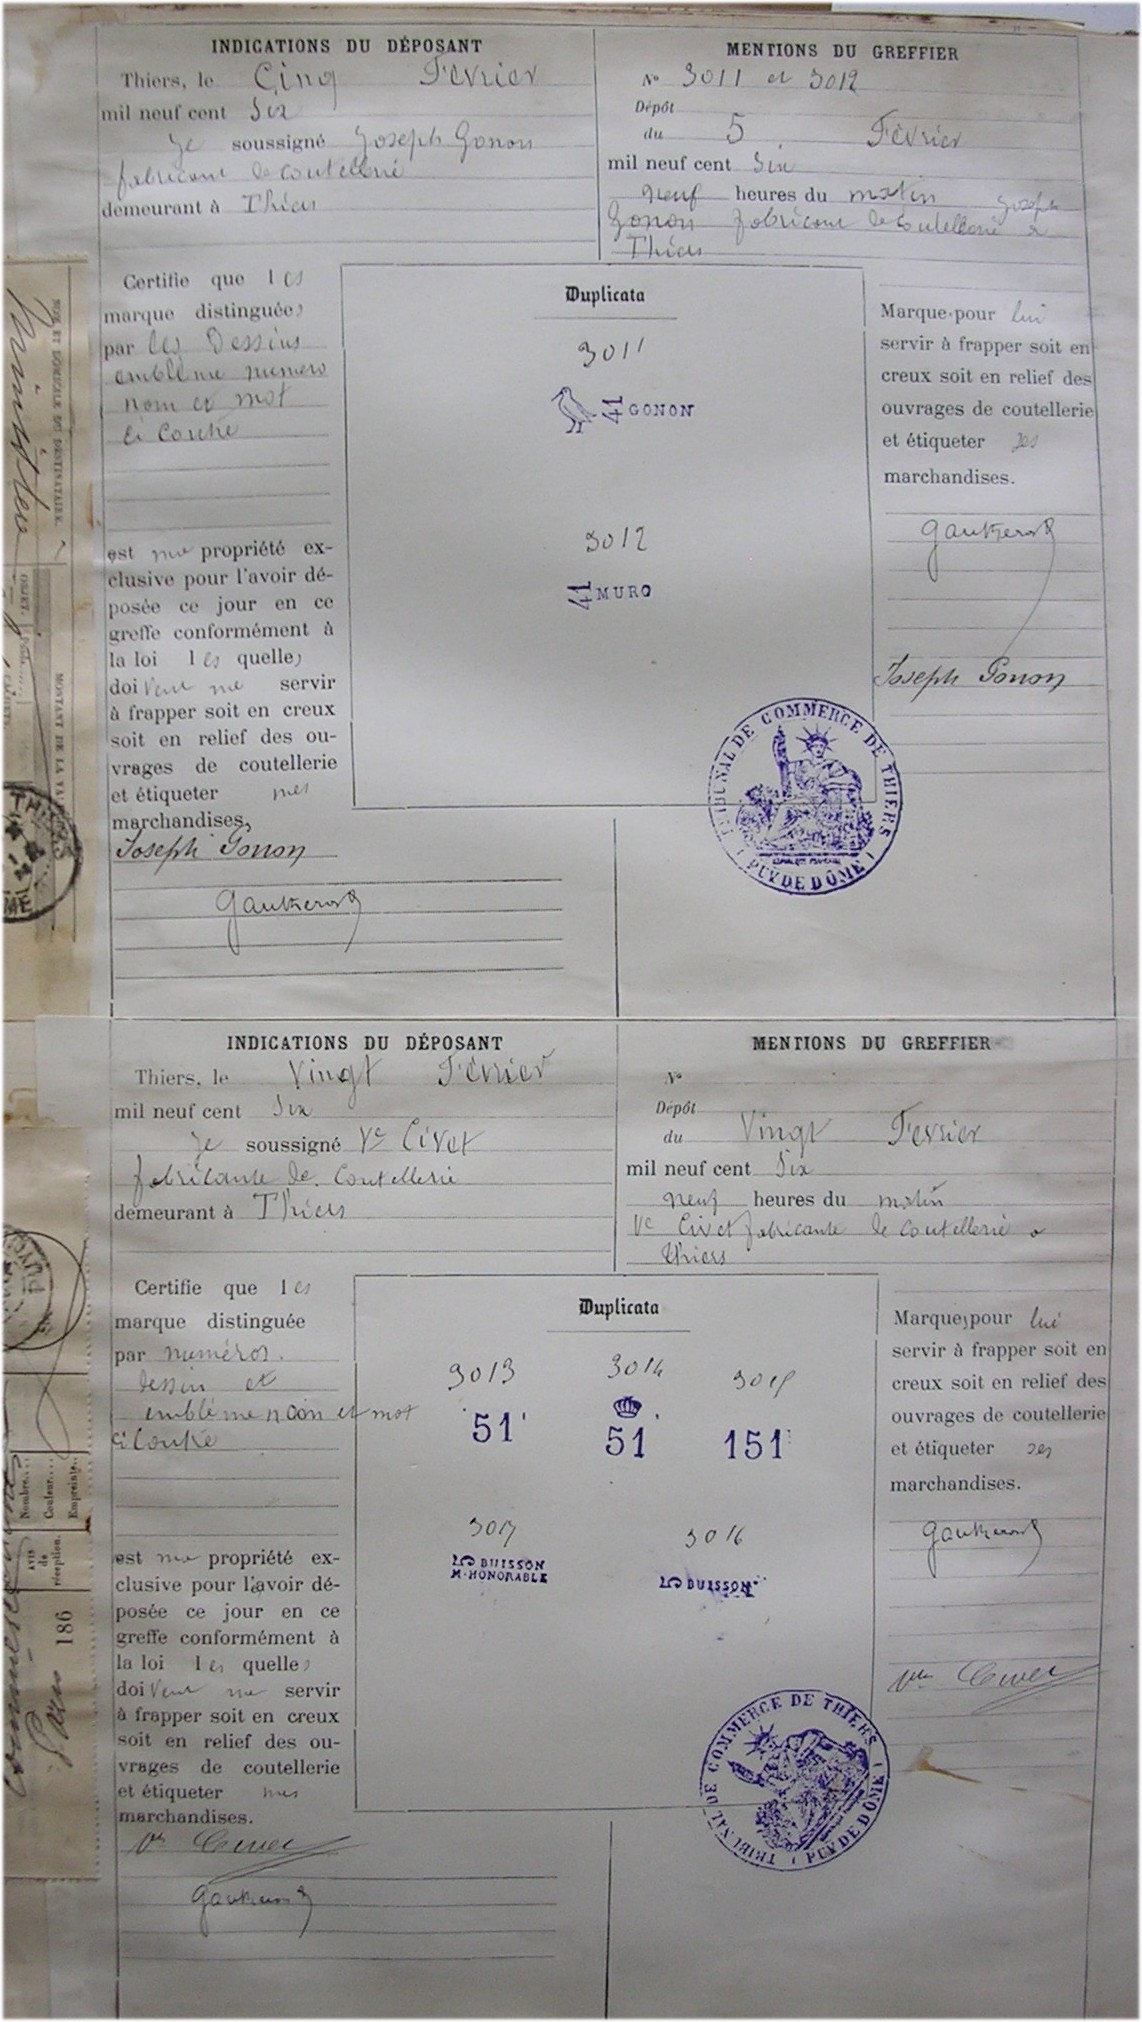 INDICATIONS DU DÉPOSANT
Thiers, le Cinq Février
mil neuf cent Six
Je soussigné Joseph Gonon
fabricant de coutellerie
demeurant à Thiers
MENTIONS DU GREFFIER
No 3011 et 3012
Dépôt
du 5 Février
mil neuf cent Six
neuf heures du matin Joseph
Gonon fabricant de coutellerie a
Thiers
Certifie que les
marque distinguées
par les Dessins
emblème numero
nom et mot
ci contre
est ma propriété ex-
clusive pour l'avoir dé-
posée ce jour en ce
greffe conformément à
la loi les quelles
doivent me servir
à frapper soit en creux
soit en relief des ou-
vrages de coutellerie
et étiqueter mes
marchandises,
Joseph Gonon
Duplicata
3011
41 GONON
3012
41 MURO
TRIBUNAL DE COMMERCE DE THIERS
PUY DE DÔME
Marque pour lui
servir à frapper soit en
creux soit en relief des
ouvrages de coutellerie
et étiqueter ses
marchandises.
Joseph Gonon
INDICATIONS DU DÉPOSANT
Thiers, le Vingt Février
mil neuf cent Six
Je soussigné Ve Civet
fabricante de Coutellerie
demeurant à Thiers
MENTIONS DU GREFFIER
No
Dépôt
du Vingt Fevrier
mil neuf cent Six
neuf heures du matin
Ve Civet fabricante de coutellerie a
Thiers
Certifie que les
marque distinguée
par numéros.
dessin et
emblème nom et mot
ci contre
est ma propriété ex-
clusive pour l'avoir dé-
posée ce jour en ce
greffe conformément à
la loi les quelles
doivent me servir
à frapper soit en creux
soit en relief des ou-
vrages de coutellerie
et étiqueter mes
marchandises.
Ve Civet
Duplicata
3013 3014 3015
51 51 151
3017 3016
51 BUISSON
M. HONORABLE
51 BUISSON
TRIBUNAL DE COMMERCE DE THIERS
PUY DE DÔME
Marques pour lui
servir à frapper soit en
creux soit en relief des
ouvrages de coutellerie
et étiqueter ses
marchandises.
Ve Civet
NOM ET DOMICILE DU DESTINATAIRE.
Ministère
OBJET.
THIERS
Nombre....
Couleur....
Empreinte..
AVIS
de
réception.
186
Paris